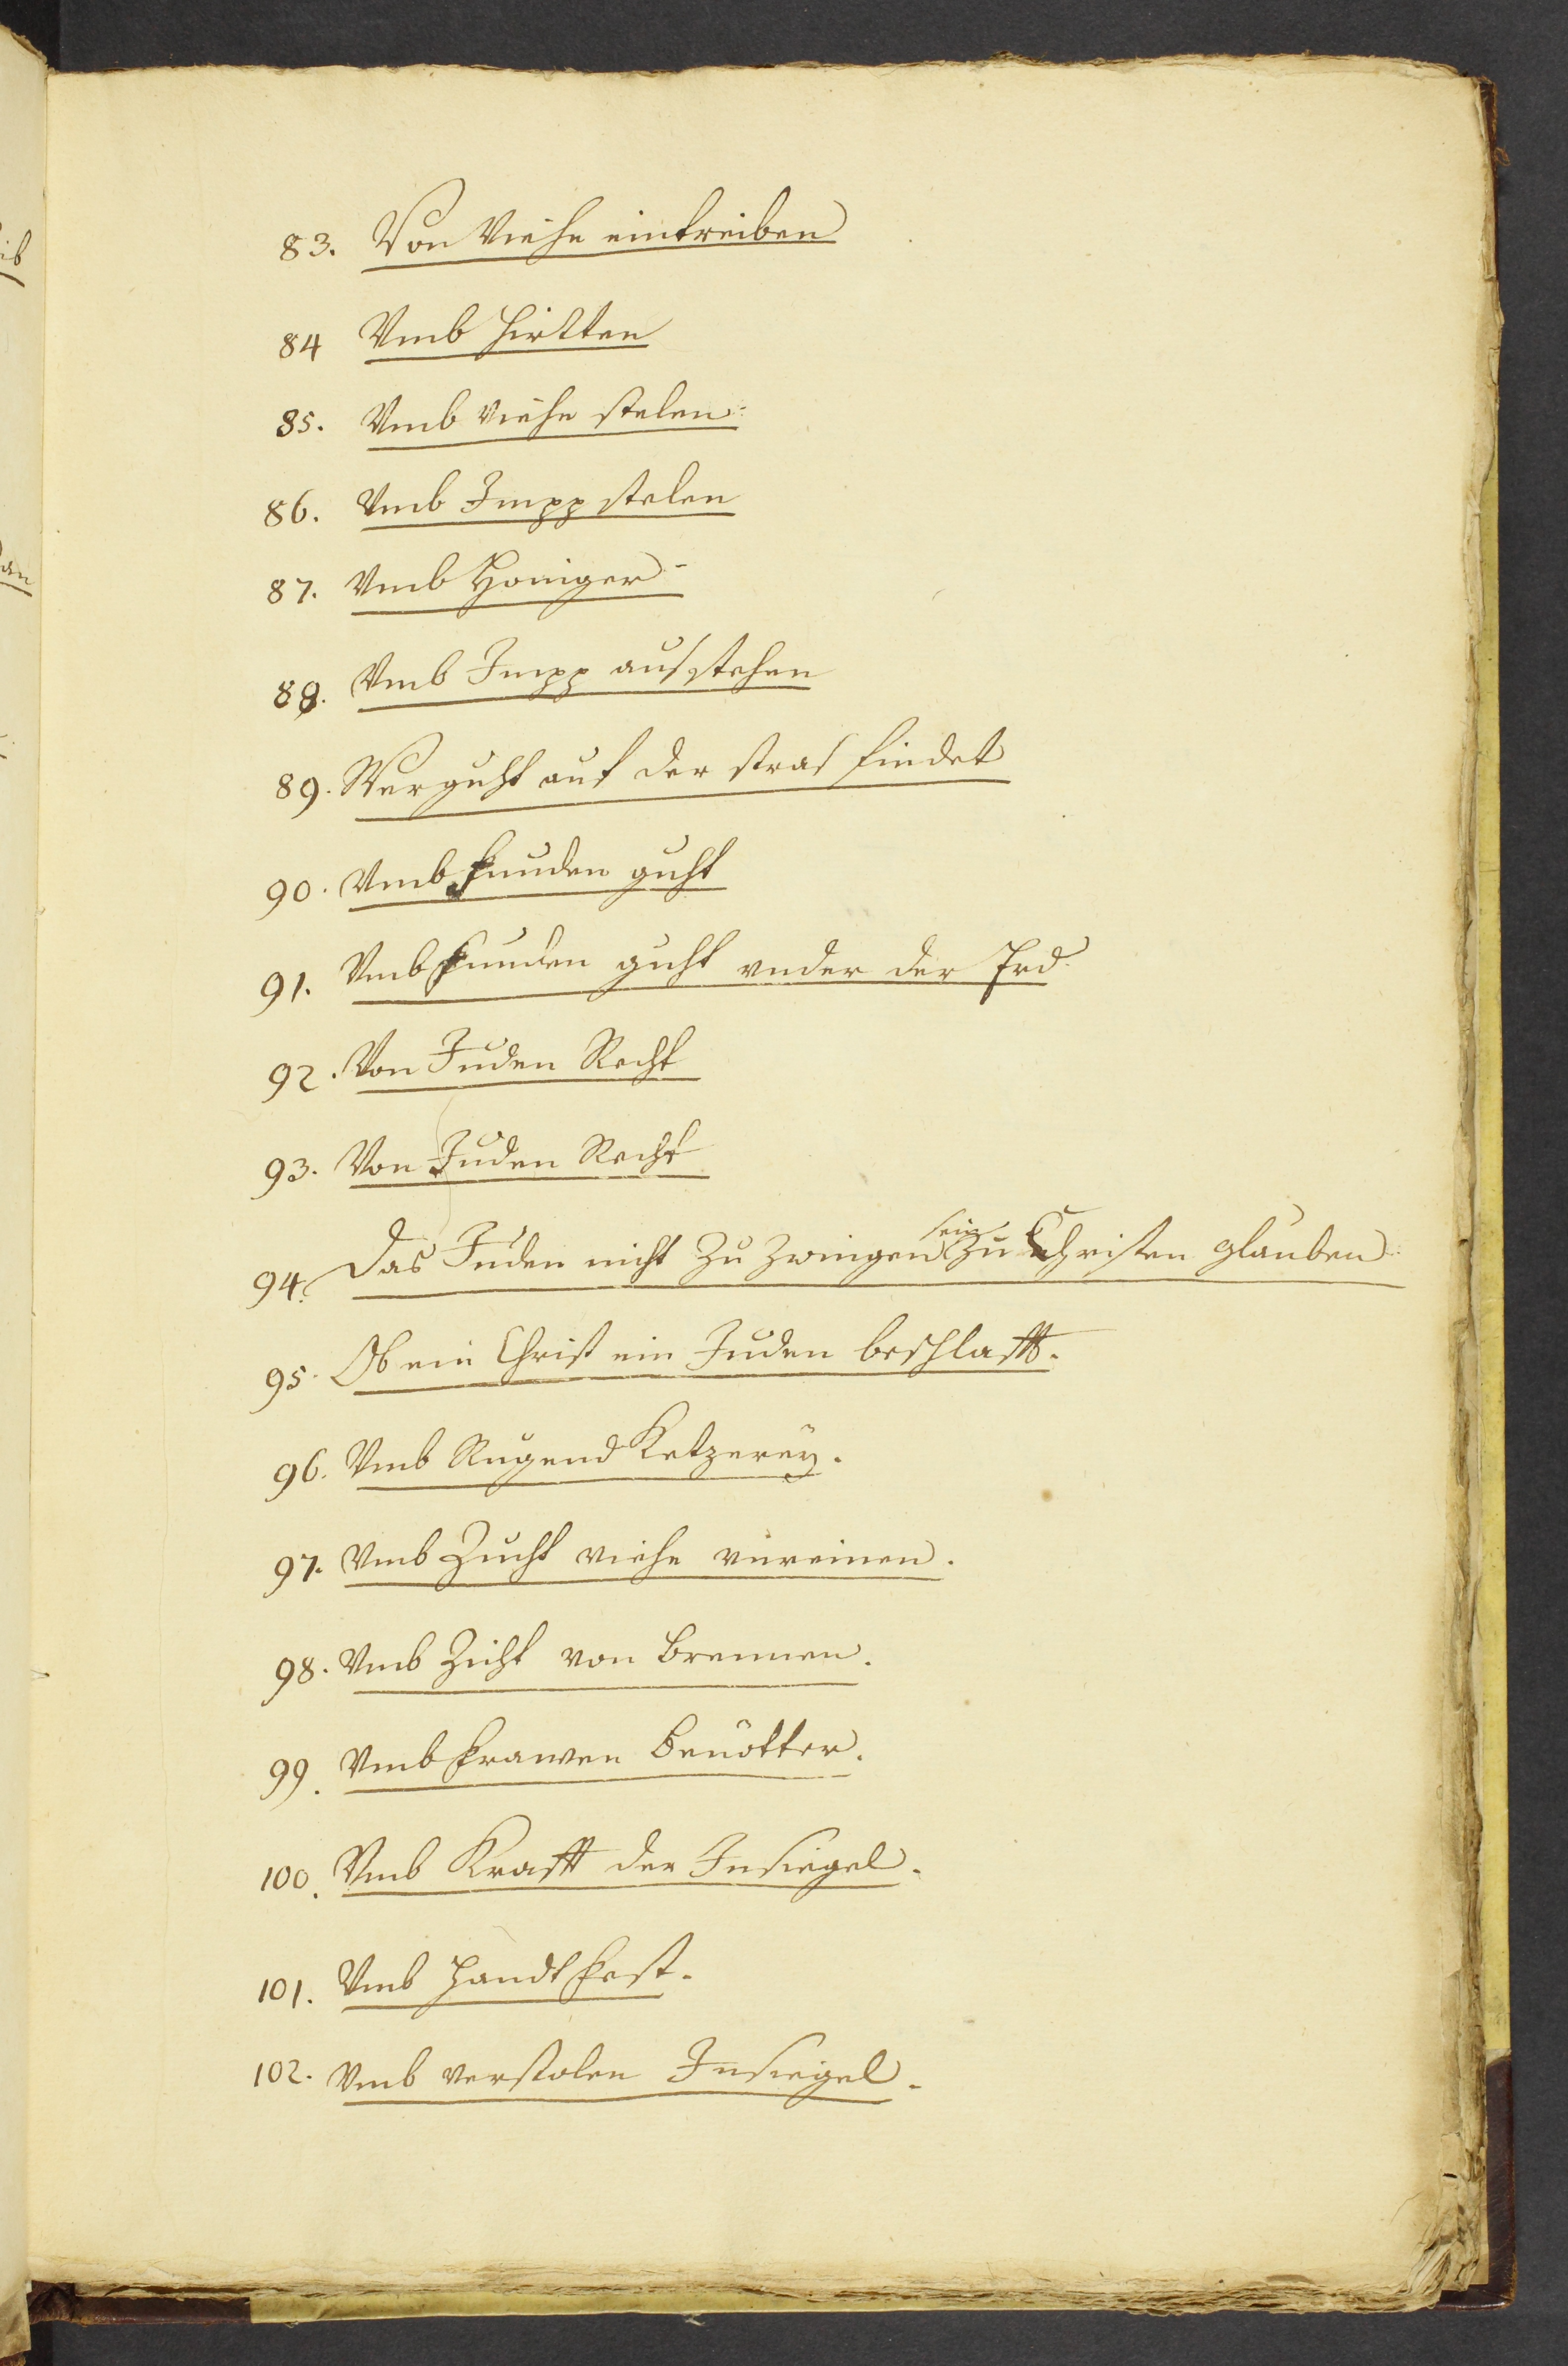 83. Von Viehe eintreiben
84 Vmb Hirtten
85. Vmb Viehe stelen
86. Vmb Impp stelen
87. Vmb Honiger
88. Vmb Impp ausstehen
89. Wer guht auf der stras findet
90. Vmb funden guht
91. Vmb funden guht vnder der Erd
92. Von Juden Recht
93. Von Juden Recht
94. Das Juden nicht zu zwingen sein zu Christen glauben
95. Ob ein Christ ein Juden beschlafft.
96. Vmb Rugend Ketzereÿ.
97. Vmb Zucht viehe vnreinen.
98. Vmb Zicht von brennen.
99. Vmb frawen benötter.
100. Vmb Krafft der Insiegel.
101. Vmb Handt fest.
102. Vmb verstolen Insiegel.